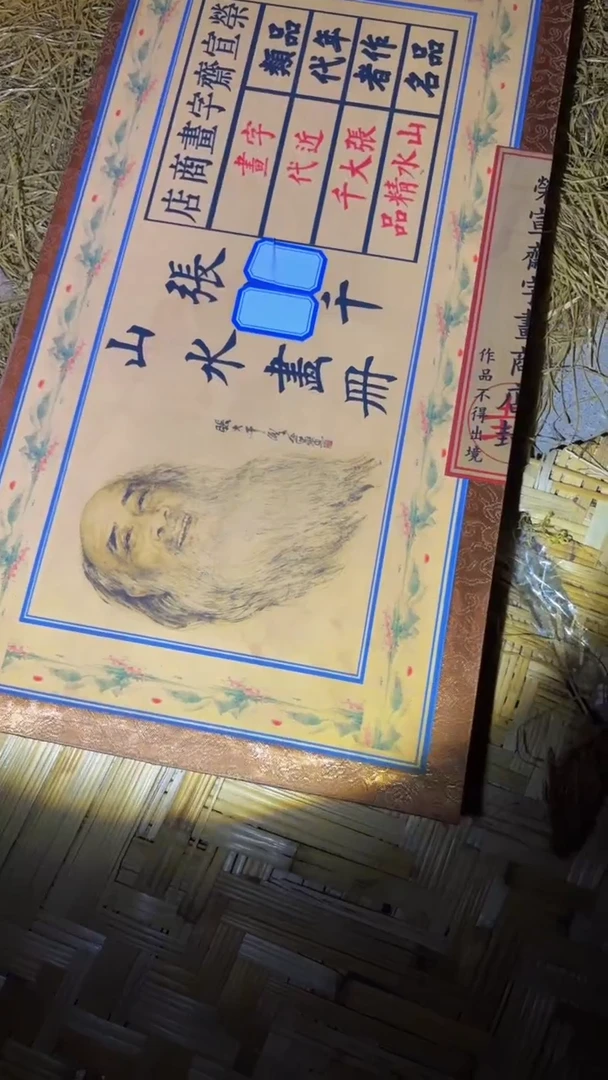 榮宣齋字畫商店
品類 字畫
年代 近代
作者 張大千
品名 山水精品
張千
山水畫冊
榮宣齋字畫商店
封
作品不得出境